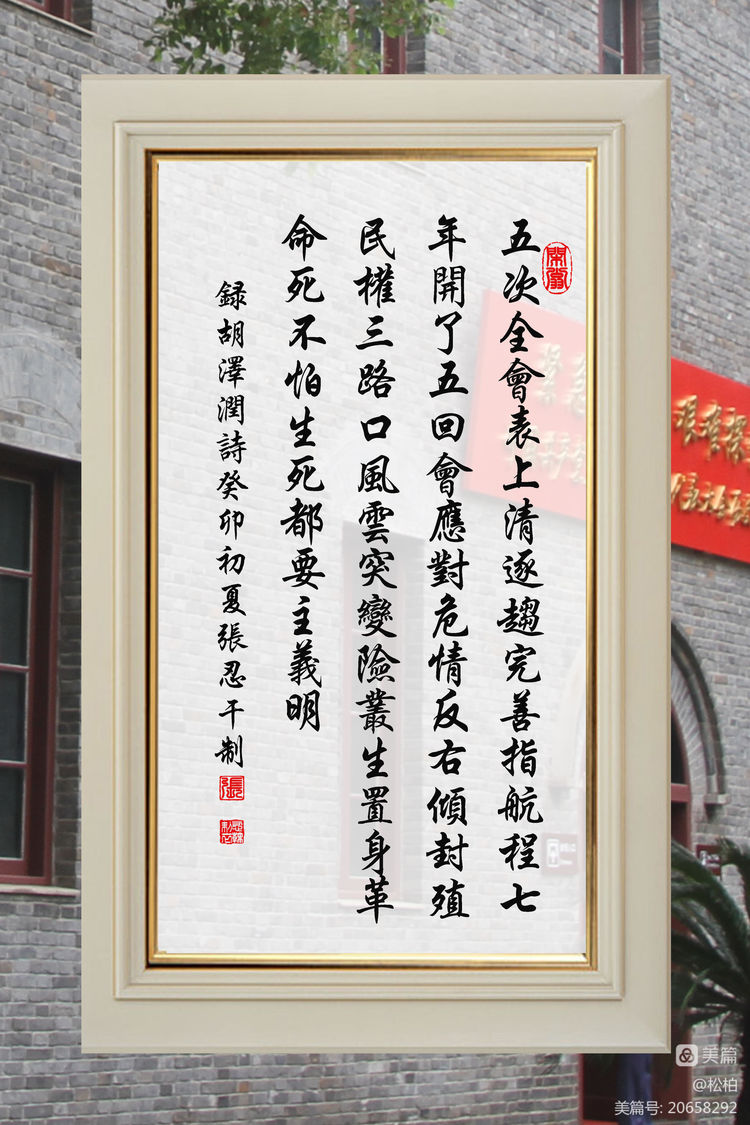 五次全會表上清逐趨完善指航程七
年開了五回會應對危情反右傾封殖
民權三路口風雲突變險叢生置身革
命死不怕生死都要主義明
録胡澤潤詩癸卯初夏張忍干制
美篇
@松柏
美篇号: 20658292